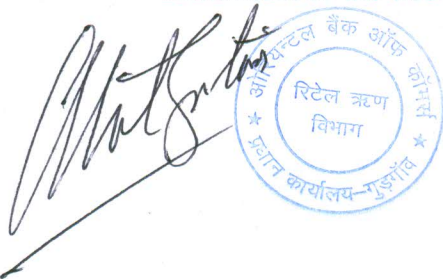 ओरियन्टल बैंक ऑफ कॉमर्स
रिटेल ऋण
विभाग
प्रधान कार्यालय–गुड़गाँव